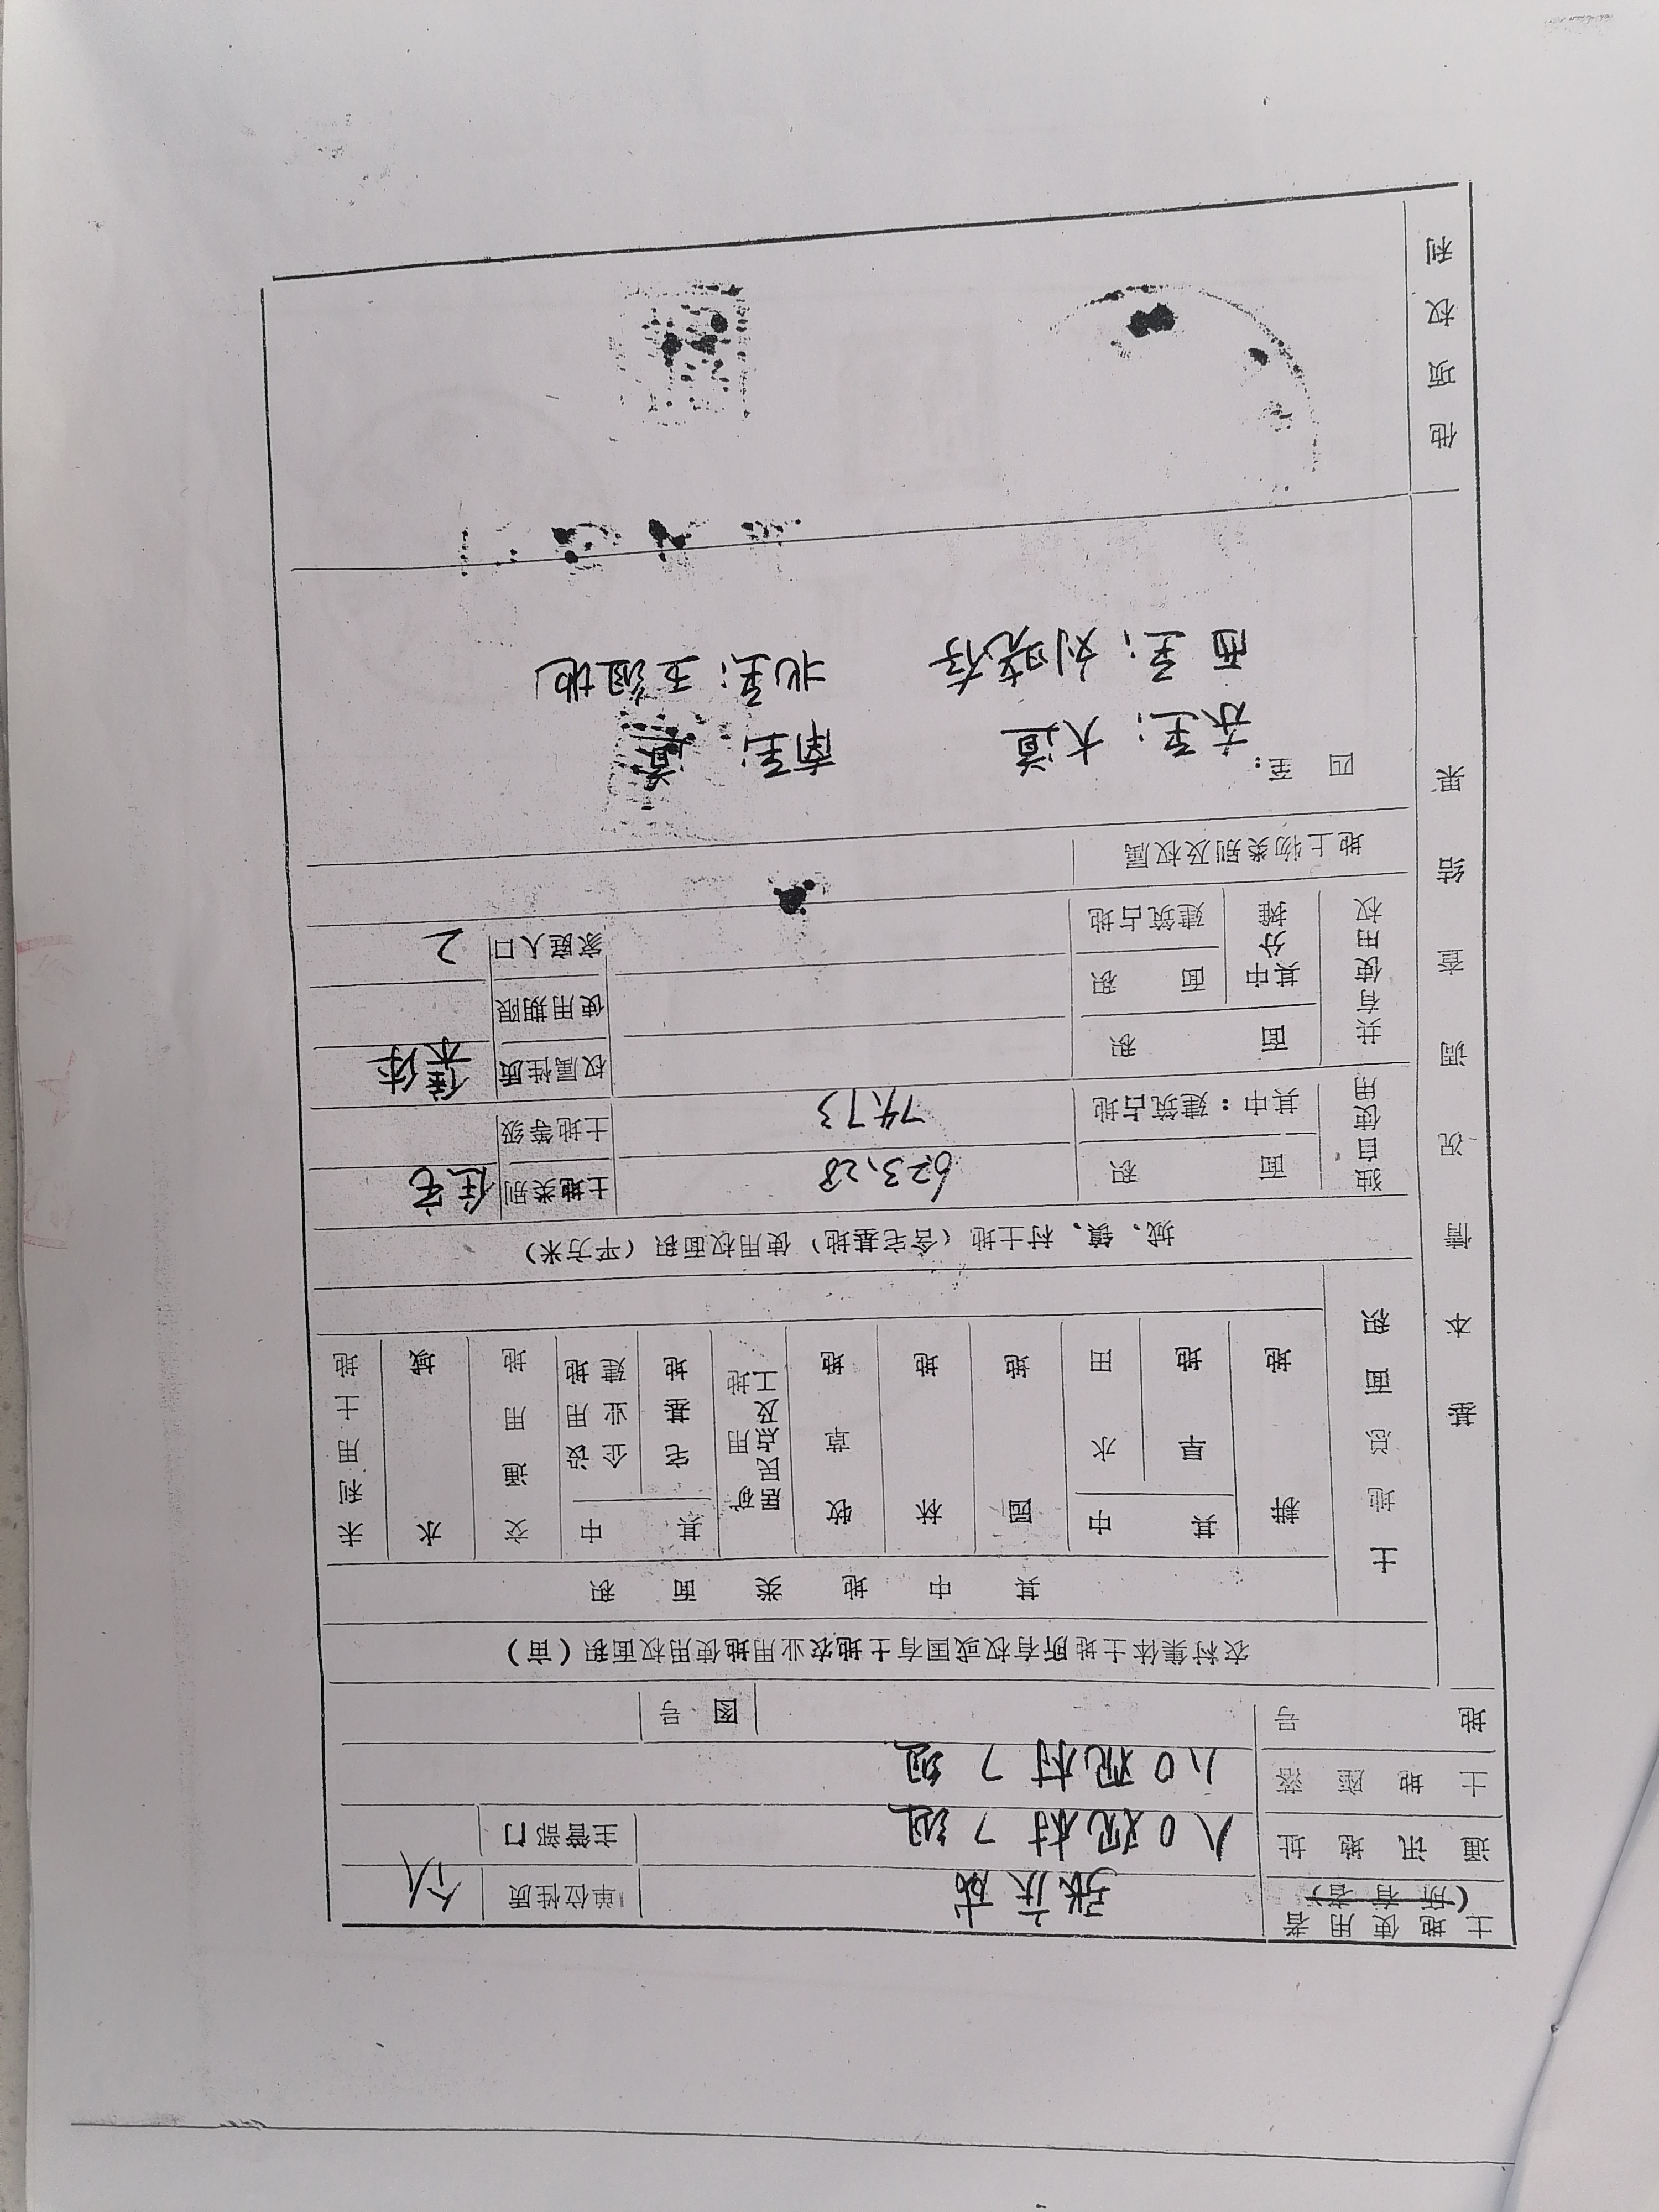 土地使用者 张庆成 单位性质 个人
(所有者)
通讯地址 八〇观村7组 主管部门
土地座落 八〇观村7组
地号 图号
基本情况调查结果
农村集体土地所有权或国有土地农业用地使用权面积(亩)
土地总面积
其中地类面积
耕地
其中
旱地
水田
园地
林地
牧草地
居民点及工矿用地
其中
宅基地
企业建设用地
交通用地
水域
未利用土地
城、镇、村土地(含宅基地)使用权面积(平方米)
独自使用
面积 623.28 土地类别 住宅
其中:建筑占地 74.73 土地等级
共有使用权
面积 权属性质 集体
其中分摊
面积 使用期限
建筑占地 家庭人口 2
地上物类别及权属
四至:
东至:大道 南至:道
西至:刘晓存 北至:五组地
他项权利